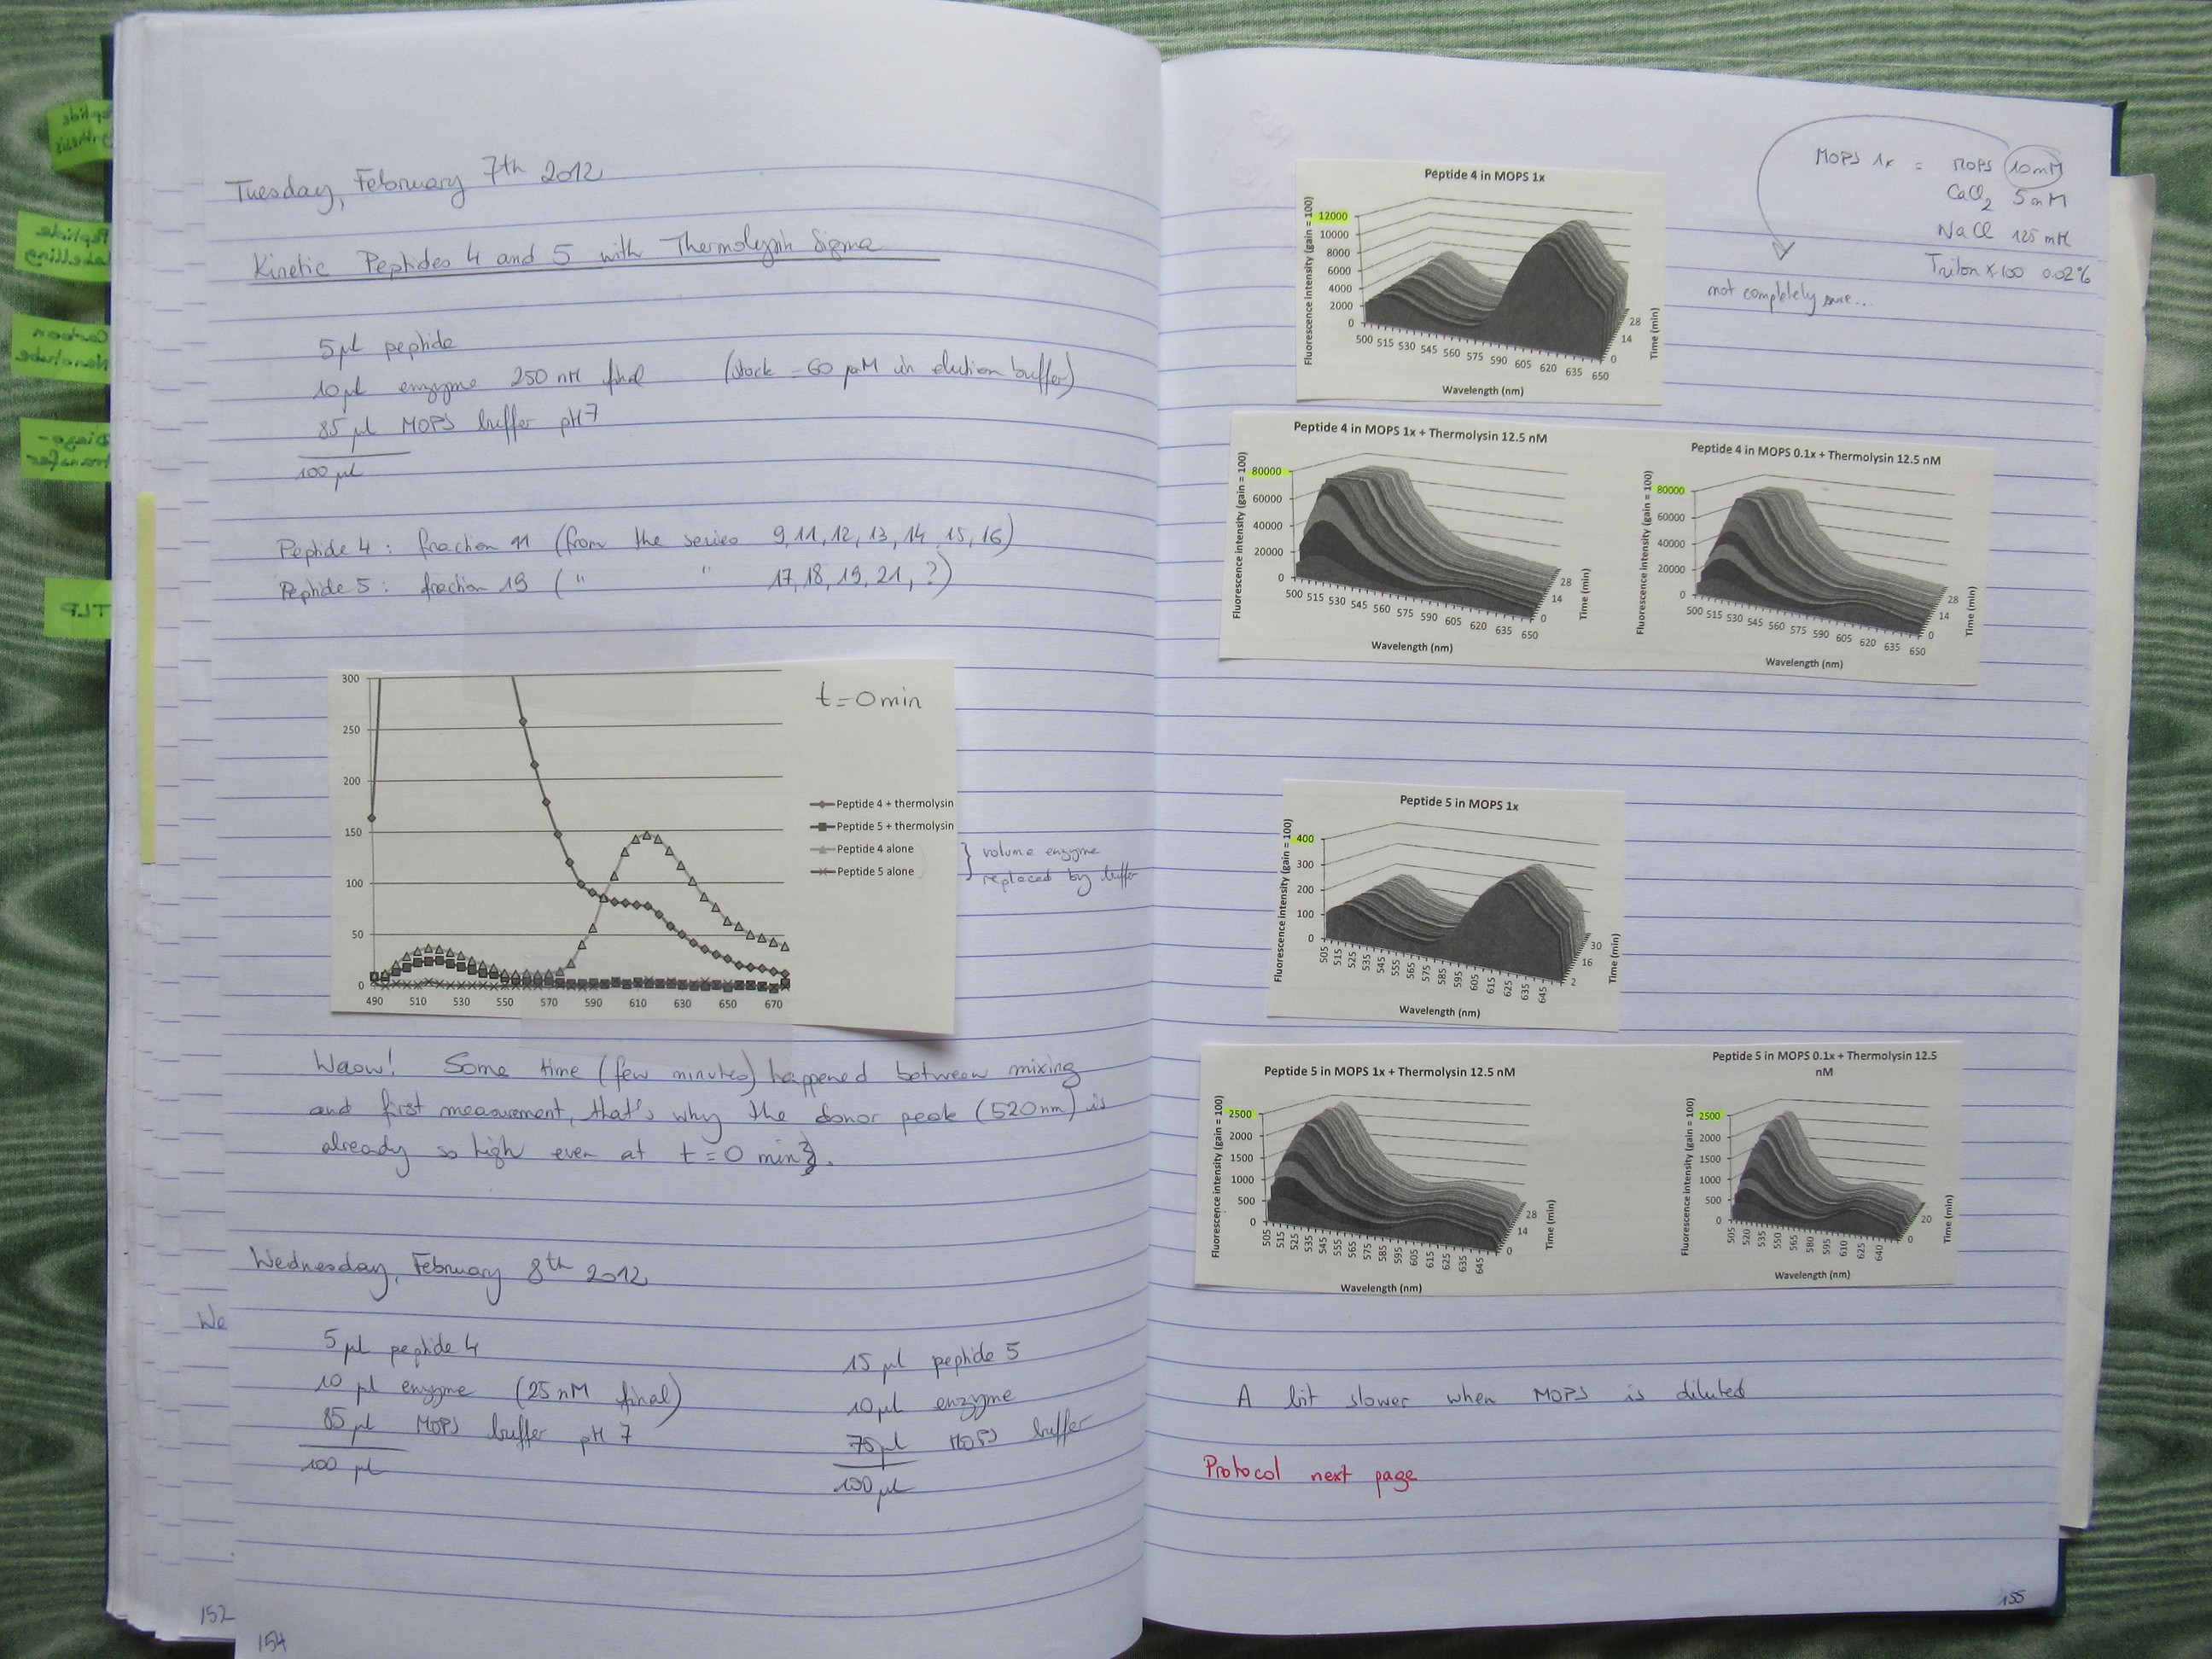 Tuesday, February 7th 2012
Kinetic Peptides 4 and 5 with Thermolysin Sigma
5 µl peptide
10 µl enzyme 250 nM final (stock = 60 µM in elution buffer)
85 µl MOPS buffer pH 7
100 µl
Peptide 4 : fraction 11 (from the series 9, 11, 12, 13, 14, 15, 16)
Peptide 5 : fraction 19 ( " " 17, 18, 19, 21, ?)
t = 0 min
300
250
200
150
100
50
0
490 510 530 550 570 590 610 630 650 670
Peptide 4 + thermolysin
Peptide 5 + thermolysin
Peptide 4 alone
Peptide 5 alone
volume enzyme
replaced by buffer
Waow! Some time (few minutes) happened between mixing
and first measurement, that's why the donor peak (520nm) is
already so high even at t = 0 min.
Wednesday, February 8th 2012
We
5 µl peptide 4
10 µl enzyme (25 nM final)
85 µl MOPS buffer pH 7
100 µl
15 µl peptide 5
10 µl enzyme
75 µl MOPS buffer
100 µl
152
154
Peptide Synthesis
Peptide Labelling
Carbon Nanotube
Diazo-transfer
TLP
MOPS 1x = MOPS 10 mM
CaCl2 5 mM
NaCl 125 mM
Triton X-100 0.02%
not completely sure...
Peptide 4 in MOPS 1x
Fluorescence intensity (gain = 100)
12000
10000
8000
6000
4000
2000
0
500 515 530 545 560 575 590 605 620 635 650
Wavelength (nm)
0 14 28
Time (min)
Peptide 4 in MOPS 1x + Thermolysin 12.5 nM
Fluorescence intensity (gain = 100)
80000
60000
40000
20000
0
500 515 530 545 560 575 590 605 620 635 650
Wavelength (nm)
0 14 28
Time (min)
Peptide 4 in MOPS 0.1x + Thermolysin 12.5 nM
Fluorescence intensity (gain = 100)
80000
60000
40000
20000
0
500 515 530 545 560 575 590 605 620 635 650
Wavelength (nm)
0 14 28
Time (min)
Peptide 5 in MOPS 1x
Fluorescence intensity (gain = 100)
400
300
200
100
0
505 515 525 535 545 555 565 575 585 595 605 615 625 635 645
Wavelength (nm)
2 16 30
Time (min)
Peptide 5 in MOPS 1x + Thermolysin 12.5 nM
Fluorescence intensity (gain = 100)
2500
2000
1500
1000
500
0
505 515 525 535 545 555 565 575 585 595 605 615 625 635 645
Wavelength (nm)
0 14 28
Time (min)
Peptide 5 in MOPS 0.1x + Thermolysin 12.5
nM
Fluorescence intensity (gain = 100)
2500
2000
1500
1000
500
0
505 520 535 550 565 580 595 610 625 640
Wavelength (nm)
0 20
Time (min)
A bit slower when MOPS is diluted
Protocol next page
155